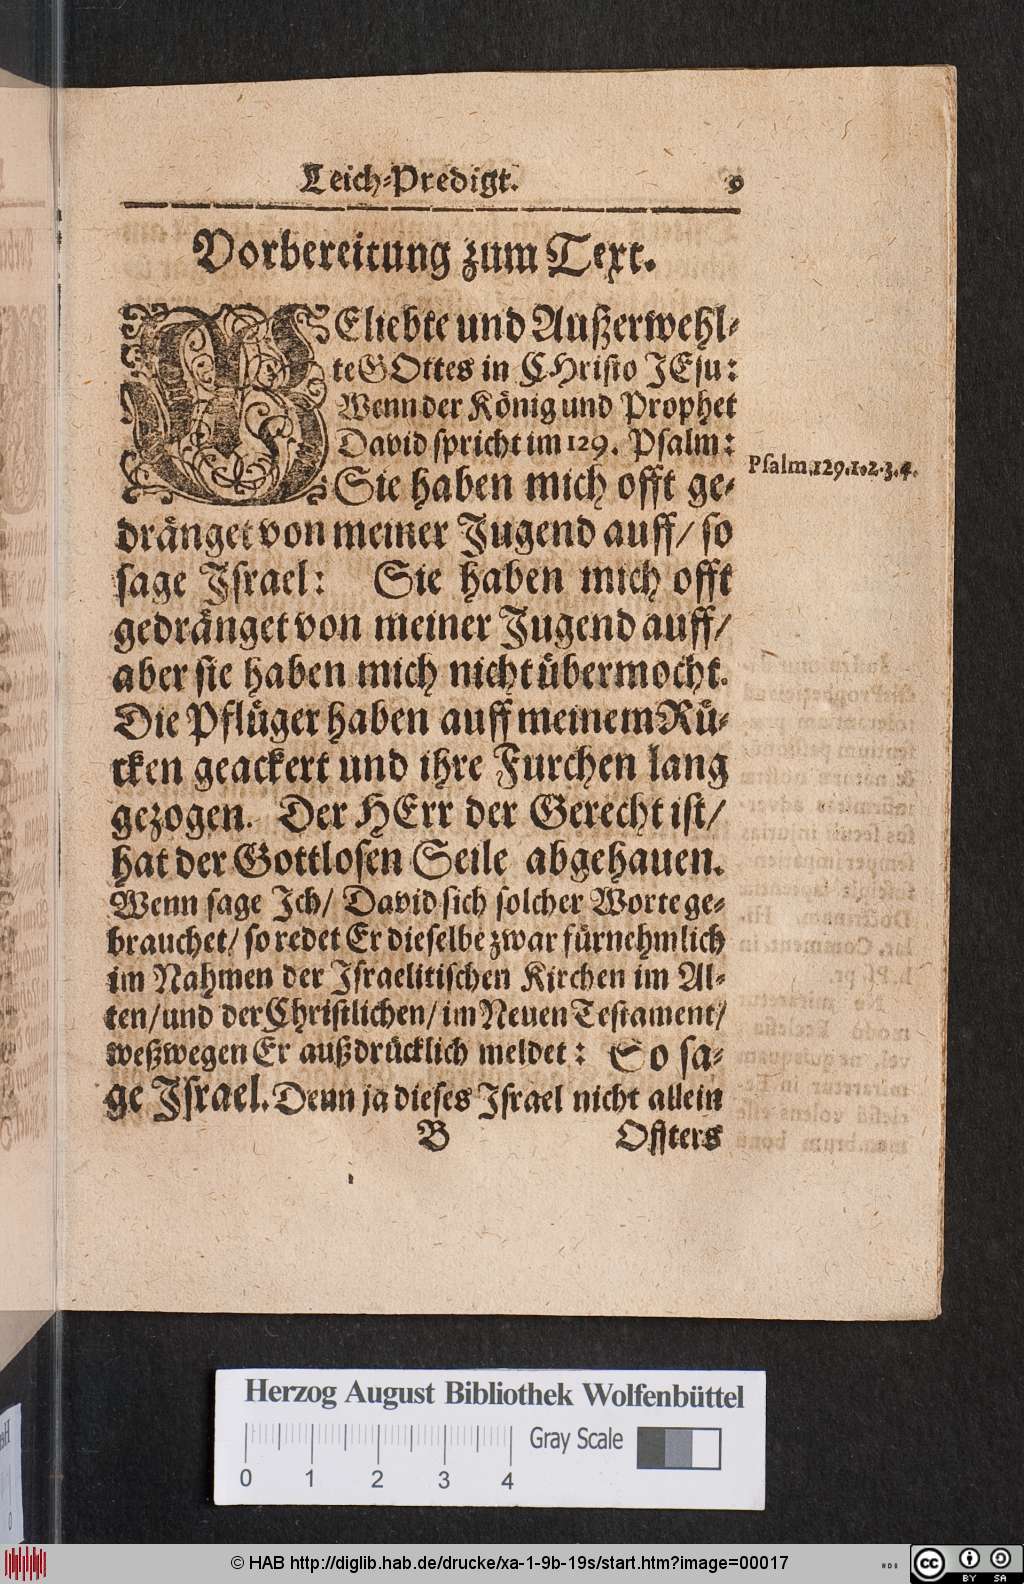 Leich-Predigt. 9
Vorbereitung zum Text.
GEliebte und Außerwehl-
te GOttes in CHristo JEsu:
Wenn der König und Prophet
David spricht im 129. Psalm:
Psalm. 129. 1. 2. 3. 4.
Sie haben mich offt ge-
dränget von meiner Jugend auff/ so
sage Israel: Sie haben mich offt
gedränget von meiner Jugend auff/
aber sie haben mich nicht übermocht.
Die Pflüger haben auff meinem Rü-
cken geackert und ihre Furchen lang
gezogen. Der HErr der Gerecht ist/
hat der Gottlosen Seile abgehauen.
Wenn sage Ich/ David sich solcher Worte ge-
brauchet/ so redet Er dieselbe zwar fürnehmlich
im Nahmen der Israelitischen Kirchen im Al-
ten/ und der Christlichen/ im Neuen Testament/
weßwegen Er außdrücklich meldet: So sa-
ge Israel. Denn ja dieses Israel nicht allein
B Offters
Herzog August Bibliothek Wolfenbüttel
Gray Scale
0 1 2 3 4
© HAB http://diglib.hab.de/drucke/xa-1-9b-19s/start.htm?image=00017
cc BY SA